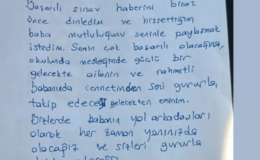 Başarılı sınav haberini biraz
önce dinledim ve hissettiğim
baba mutluluğunu seninle paylaşmak
istedim. Senin çok başarılı olacağına,
okulunda mesleğinde güçlü bir
gelecekte ailenin ve rahmetli
babanında cennetinden seni gururla
takip edeceği gelecekten eminim.
Bizlerde babanın yol arkadaşları
olarak her zaman yanınızda
olacağız ve sizleri gururla